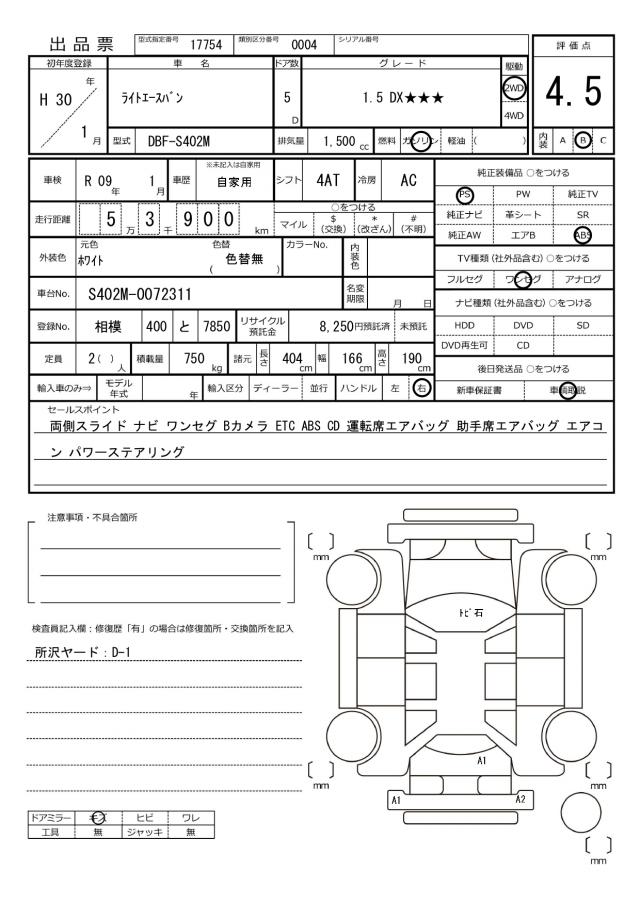 出品票 型式指定番号 17754 類別区分番号 0004 シリアル番号
評価点
初年度登録 車名 ドア数 グレード 駆動
H 30 年 1 月 ライトエースバン 5 D 1.5 DX★★★ 2WD 4WD 4.5
型式 DBF-S402M 排気量 1,500 cc 燃料 ガソリン 軽油 ( ) 内装 A B C
車検 R 09 年 1 月 車歴 ※未記入は自家用 自家用 シフト 4AT 冷房 AC
走行距離 5 万 3 千 9 0 0 km ○をつける マイル $ (交換) * (改ざん) # (不明)
外装色 元色 ホワイト 色替 ( 色替無 ) カラーNo. 内装色
車台No. S402M-0072311 名変期限 月 日
登録No. 相模 400 と 7850 リサイクル預託金 8,250円預託済 未預託
定員 2( ) 人 積載量 750 kg 諸元 長さ 404 cm 幅 166 cm 高さ 190 cm
輸入車のみ⇒ モデル年式 年 輸入区分 ディーラー 並行 ハンドル 左 右
純正装備品 ○をつける
PS PW 純正TV
純正ナビ 革シート SR
純正AW エアB ABS
TV種類 (社外品含む) ○をつける
フルセグ ワンセグ アナログ
ナビ種類 (社外品含む) ○をつける
HDD DVD SD
DVD再生可 CD
後日発送品 ○をつける
新車保証書 車輌取説
セールスポイント
両側スライド ナビ ワンセグ Bカメラ ETC ABS CD 運転席エアバッグ 助手席エアバッグ エアコ
ン パワーステアリング
注意事項・不具合箇所
検査員記入欄：修復歴「有」の場合は修復箇所・交換箇所を記入
所沢ヤード：D-1
ドアミラー キズ ヒビ ワレ
工具 無 ジャッキ 無
mm
mm
トビ石
A1
mm
mm
A1
A2
mm